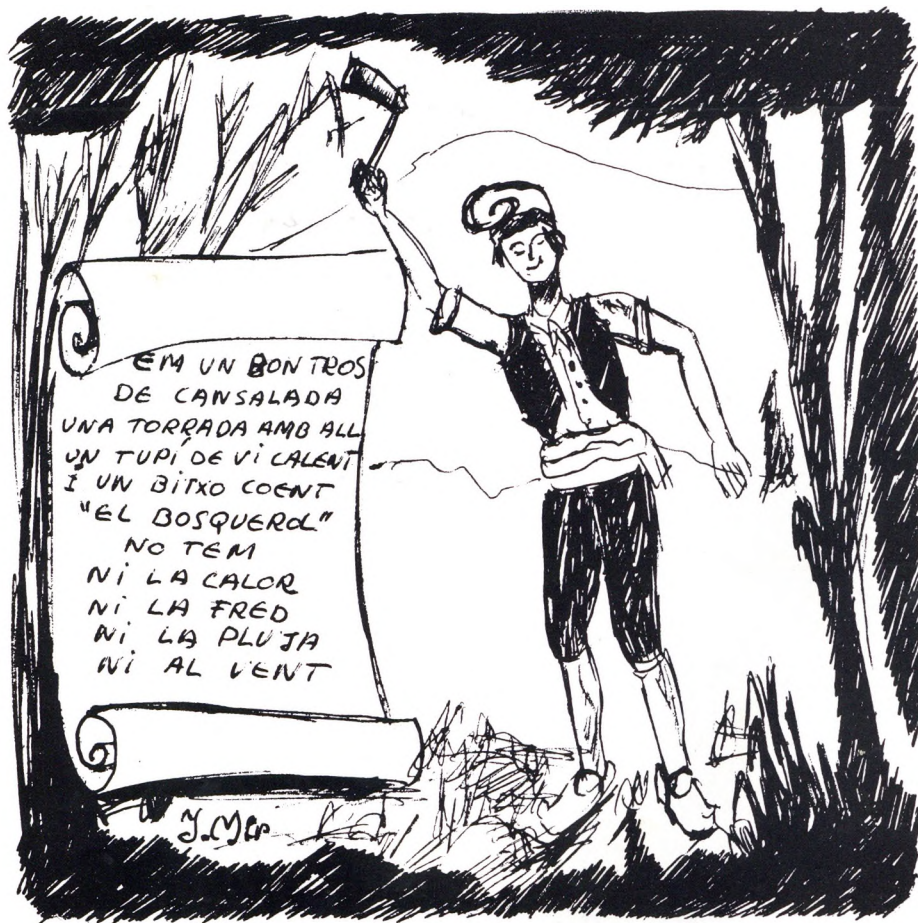 EM UN BON TROS
DE CANSALADA
UNA TORRADA AMB ALL
UN TUPÍ DE Vi CALENT
I UN BITXO COENT
"EL BOSQUEROL"
NO TEM
Ni LA CALOR
Ni LA FRED
Ni LA PLUJA
Ni AL VENT